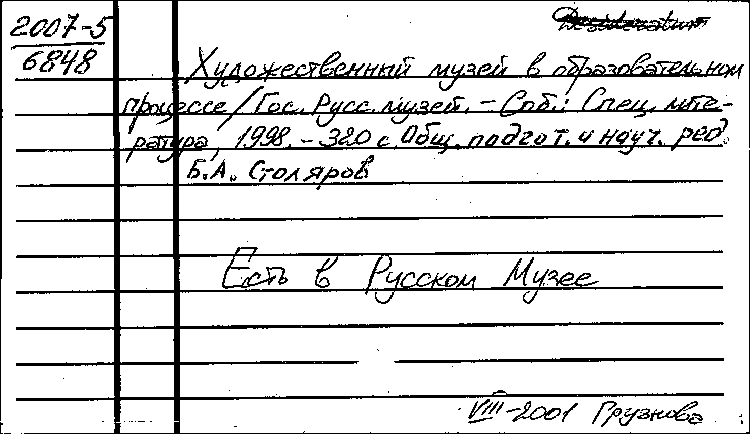 2007-5
6848
Художественный музей в образовательном
процессе/Гос. Русс. музей. - Спб.: Спец. лите-
ратура, 1998. - 320 с. Общ. подгот. и науч. ред.
Б.А. Столяров
Есть в Русском Музее
VIII-2001 Грузнова